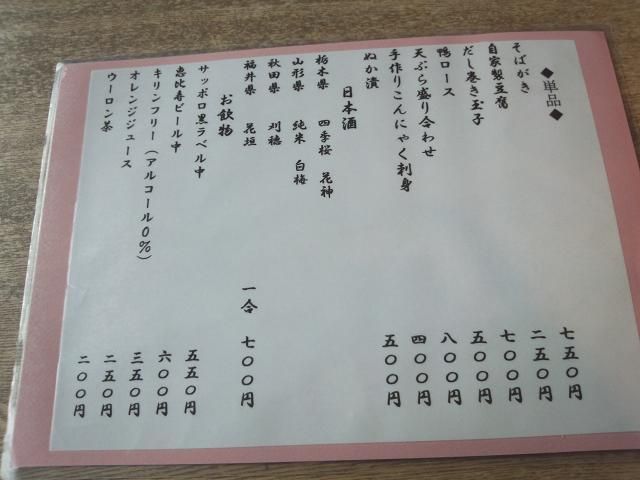 ◆単品◆
そばがき 七五〇円
自家製豆腐 二五〇円
だし巻き玉子 七〇〇円
鴨ロース 五〇〇円
天ぷら盛り合わせ 八〇〇円
手作りこんにゃく刺身 四〇〇円
ぬか漬 五〇〇円
日本酒
栃木県 四季桜 花神
山形県 純米 白梅
秋田県 刈穂
福井県 花垣 一合 七〇〇円
お飲物
サッポロ黒ラベル中 五五〇円
恵比寿ビール中 六〇〇円
キリンフリー(アルコール0%) 三五〇円
オレンジジュース 二五〇円
ウーロン茶 二〇〇円